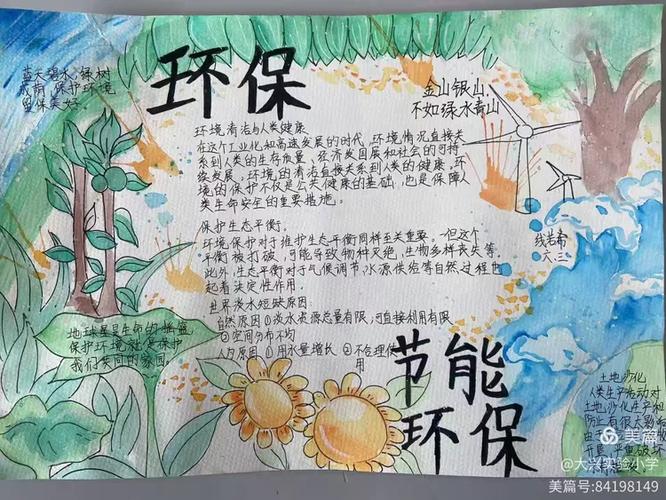 环保
蓝天碧水,绿树
成荫,保护环境
留保美好
金山银山,
不如绿水青山
环境清洁与人类健康
在这个工业化和高速发展的时代,环境情况直接关
系到人类的生存质量,经济发展和社会的可持
续发展,环境的清洁直接关系到人类的健康,环
境的保护不仅是公共健康的基础,也是保障人
类生命安全的重要措施。
保护生态平衡。
环境保护对于维护生态平衡同样至关重要,但这个
平衡被打破,可能导致物种灭绝,生物多样丧失等。
此外,生态平衡对于气候调节,水源供给等自然过程也
起着决定性作用。
世界淡水短缺原因:
自然原因①淡水资源总量有限,可直接利用有限
②空间分布不均
人为原因①用水量增长 ②不合理使
用
六.三
地球是生命的摇篮
保护环境就是保护
我们共同的家园.
节能
环保
土地沙化
人类生产活动对
土地沙化生产和
防止有很大影响
由于
开垦,严重破坏
美篇
@大兴实验小学
美篇号:84198149